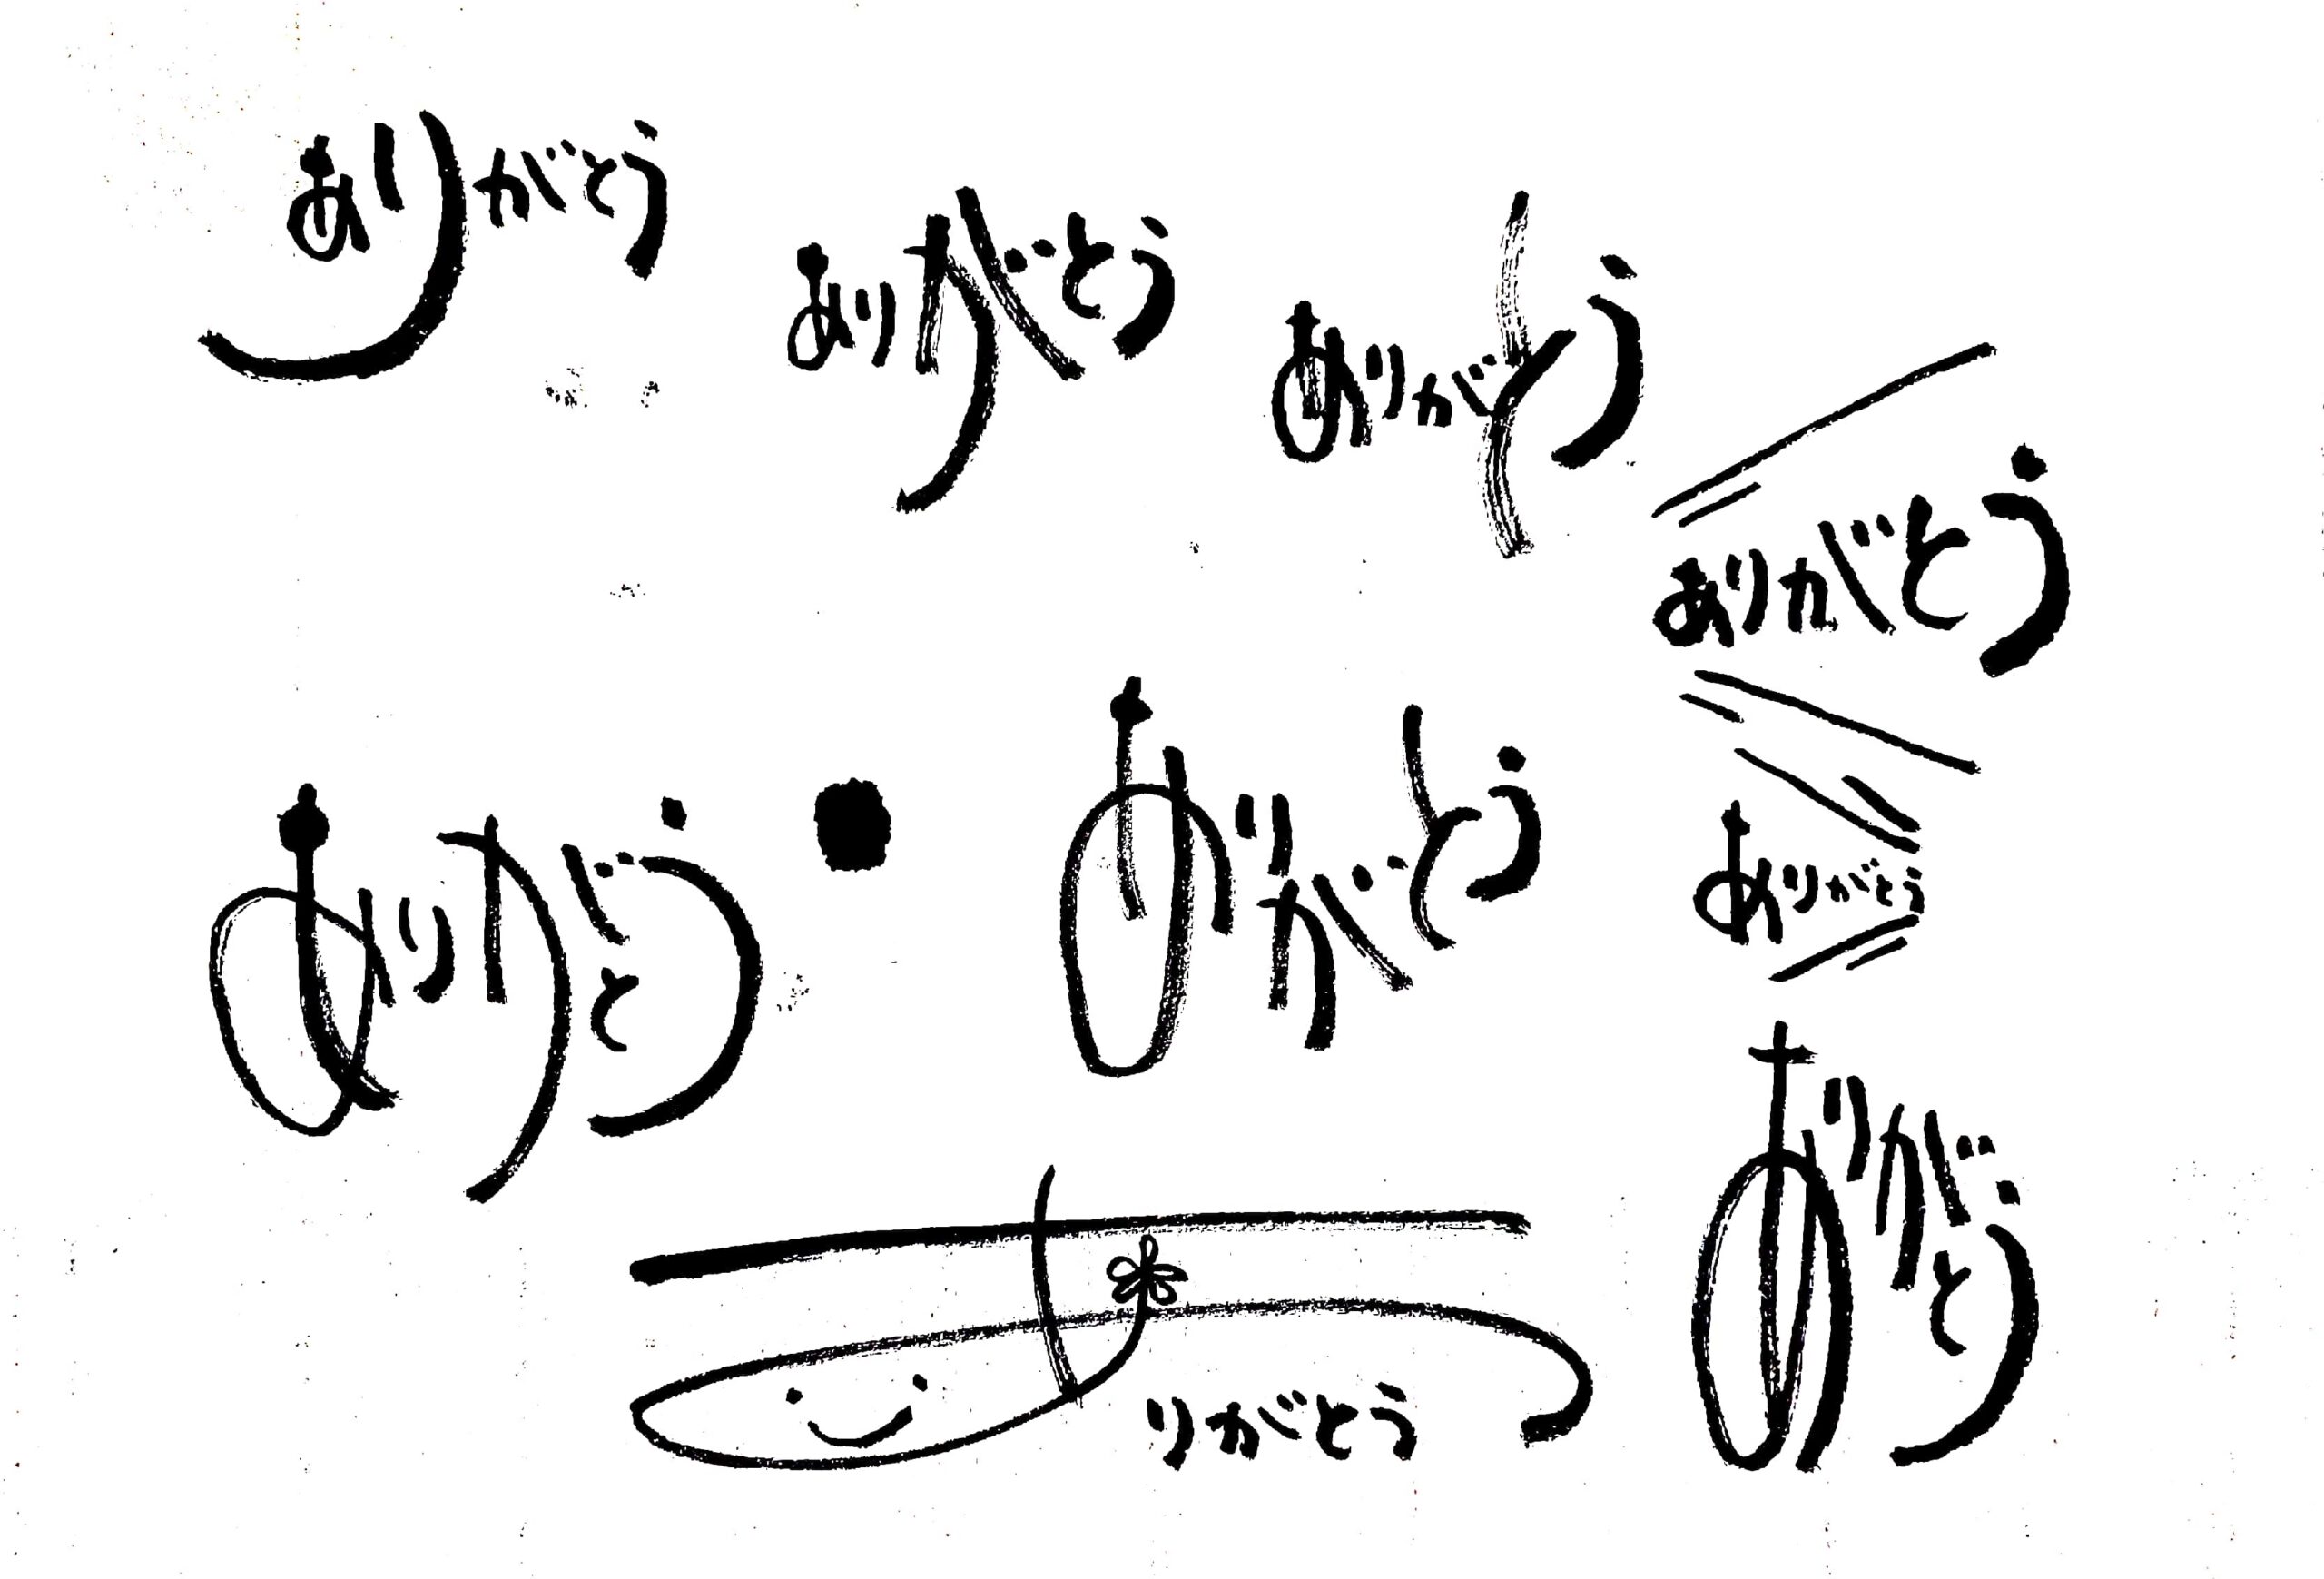 ありがとう
ありがとう
ありがとう
ありがとう
ありがとう
ありがとう
ありがとう
ありがとう
ありがとう